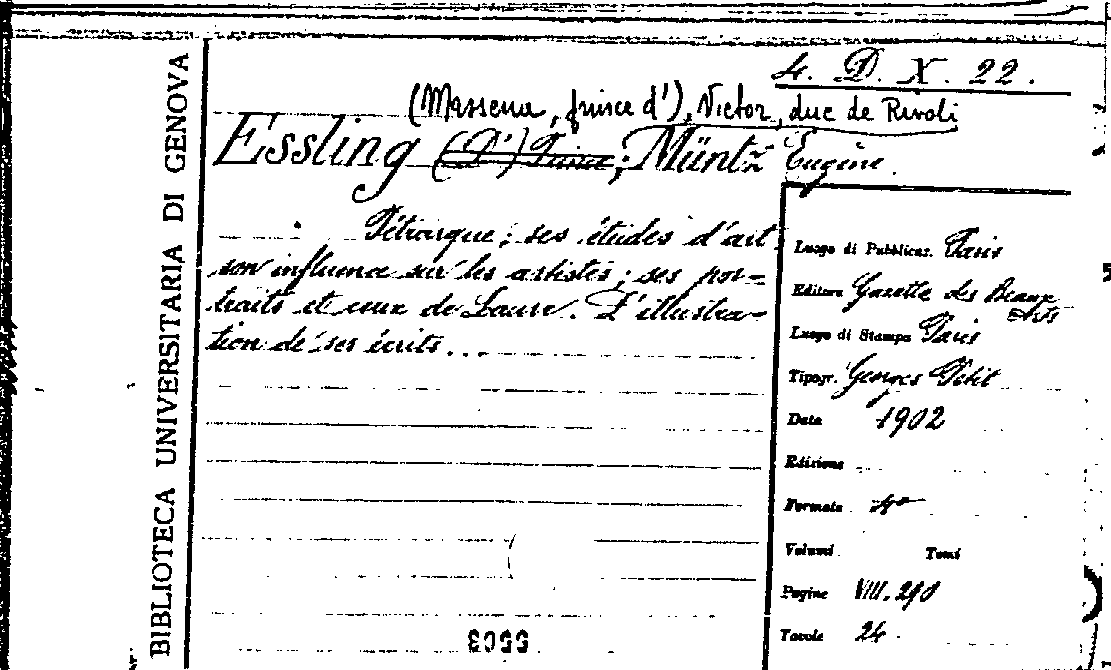 4. D. X. 22.
(Massena, prince d'), Victor, duc de Rivoli
Essling (D') Prince; Müntz Eugène.
Pétrarque; ses études d'art
son influence sur les artistes; ses por=
traits et ceux de Laure. L'illustra=
tion de ses écrits...
Luogo di Pubblicaz. Paris
Editore Gazette des Beaux
Arts
Luogo di Stampa Paris
Tipogr. Georges Petit
Data 1902
Edizione
Formato 4°
Volumi Tomi
Pagine VIII. 290
Tavole 24.
BIBLIOTECA UNIVERSITARIA DI GENOVA
5503